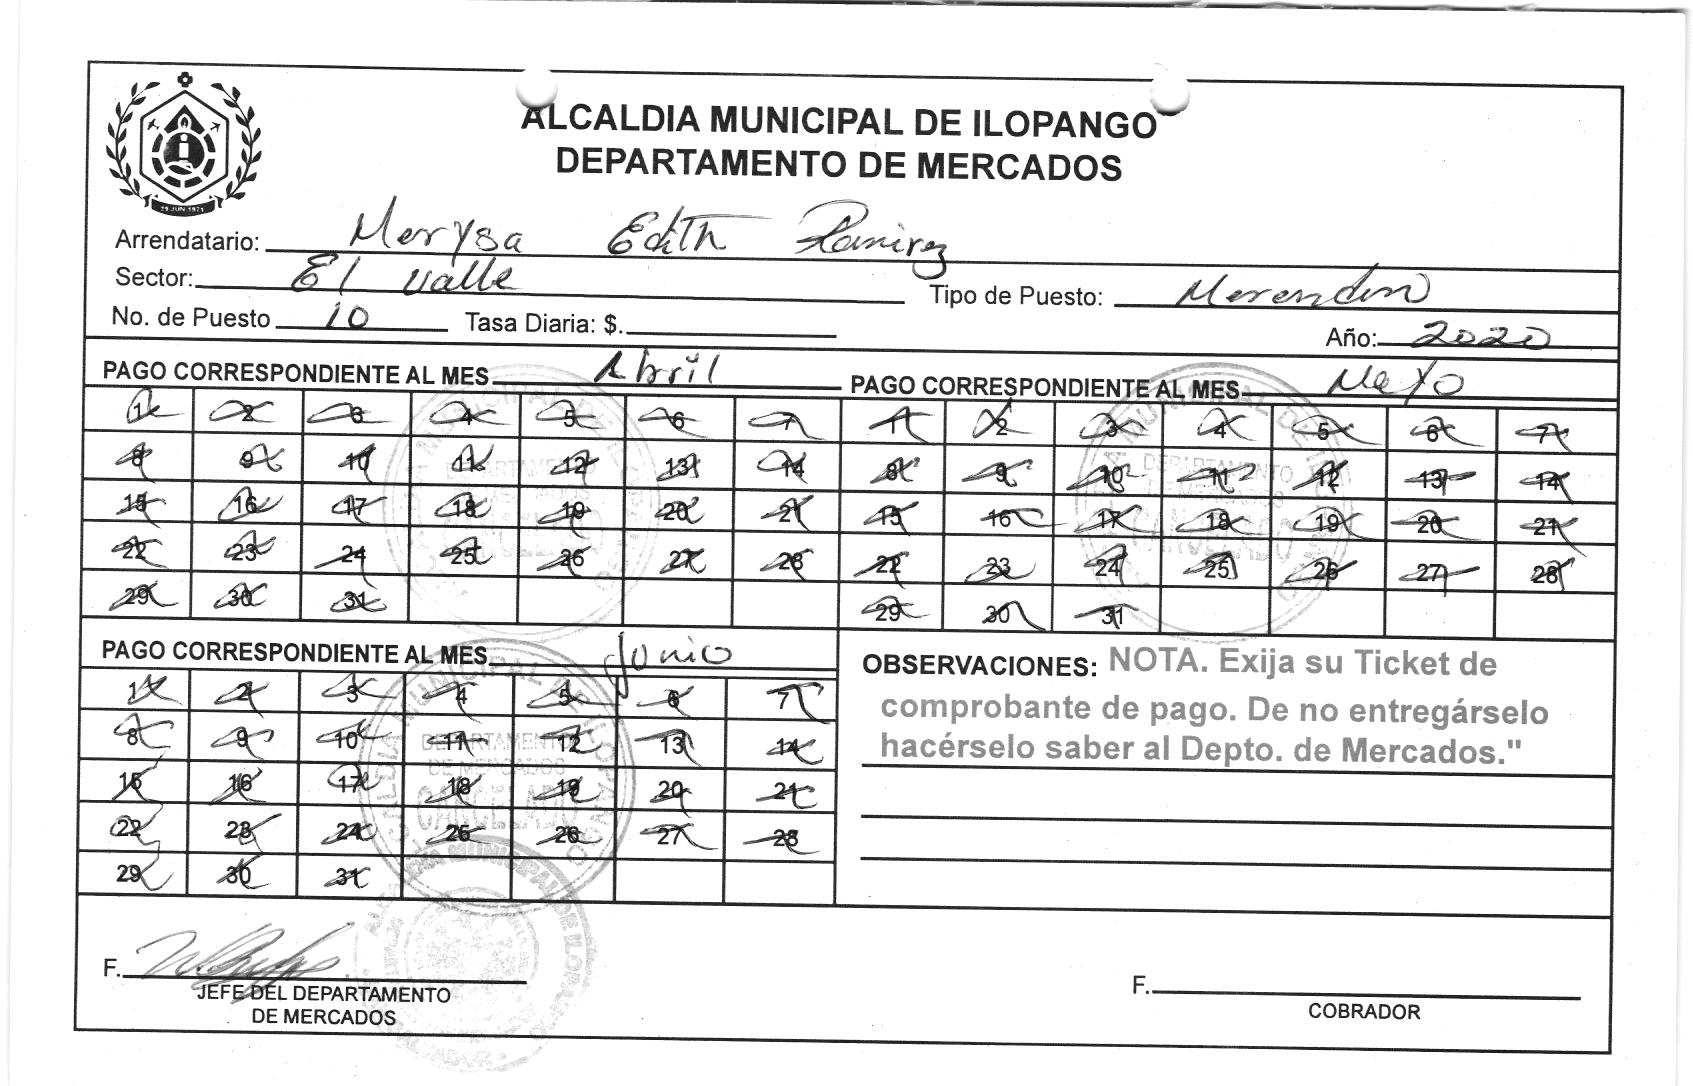 ALCALDIA MUNICIPAL DE ILOPANGO
DEPARTAMENTO DE MERCADOS
29 JUN 1971
Arrendatario: Merysa Edith Ramirez
Sector: El Valle
Tipo de Puesto: Merendero
No. de Puesto 10 Tasa Diaria: $.
Año: 2020
PAGO CORRESPONDIENTE AL MES Abril
1 2 3 4 5 6 7
8 9 10 11 12 13 14
15 16 17 18 19 20 21
22 23 24 25 26 27 28
29 30 31
PAGO CORRESPONDIENTE AL MES Mayo
1 2 3 4 5 6 7
8 9 10 11 12 13 14
15 16 17 18 19 20 21
22 23 24 25 26 27 28
29 30 31
PAGO CORRESPONDIENTE AL MES Junio
1 2 3 4 5 6 7
8 9 10 11 12 13 14
15 16 17 18 19 20 21
22 23 24 25 26 27 28
29 30 31
ALCALDIA MUNICIPAL DE ILOPANGO
DEPARTAMENTO
DE MERCADOS
CANCELADO
OBSERVACIONES: NOTA. Exija su Ticket de
comprobante de pago. De no entregárselo
hacérselo saber al Depto. de Mercados."
F.
JEFE DEL DEPARTAMENTO
DE MERCADOS
F.
COBRADOR